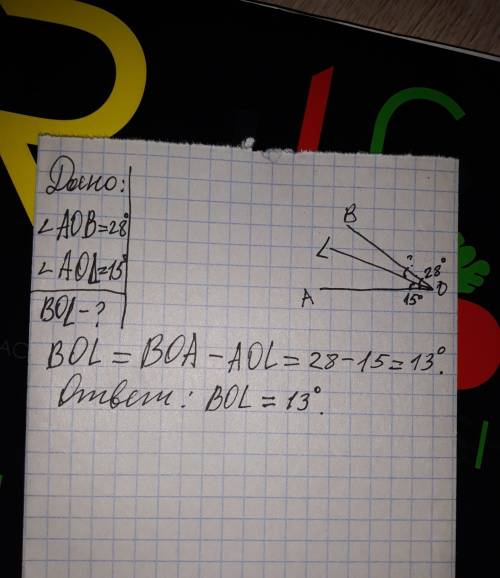 Дано:
∠AOB=28°
∠AOL=15°
BOL-?
B
L
?
28°
A
15°
O
BOL = BOA - AOL = 28 - 15 = 13°.
Ответ: BOL = 13°.